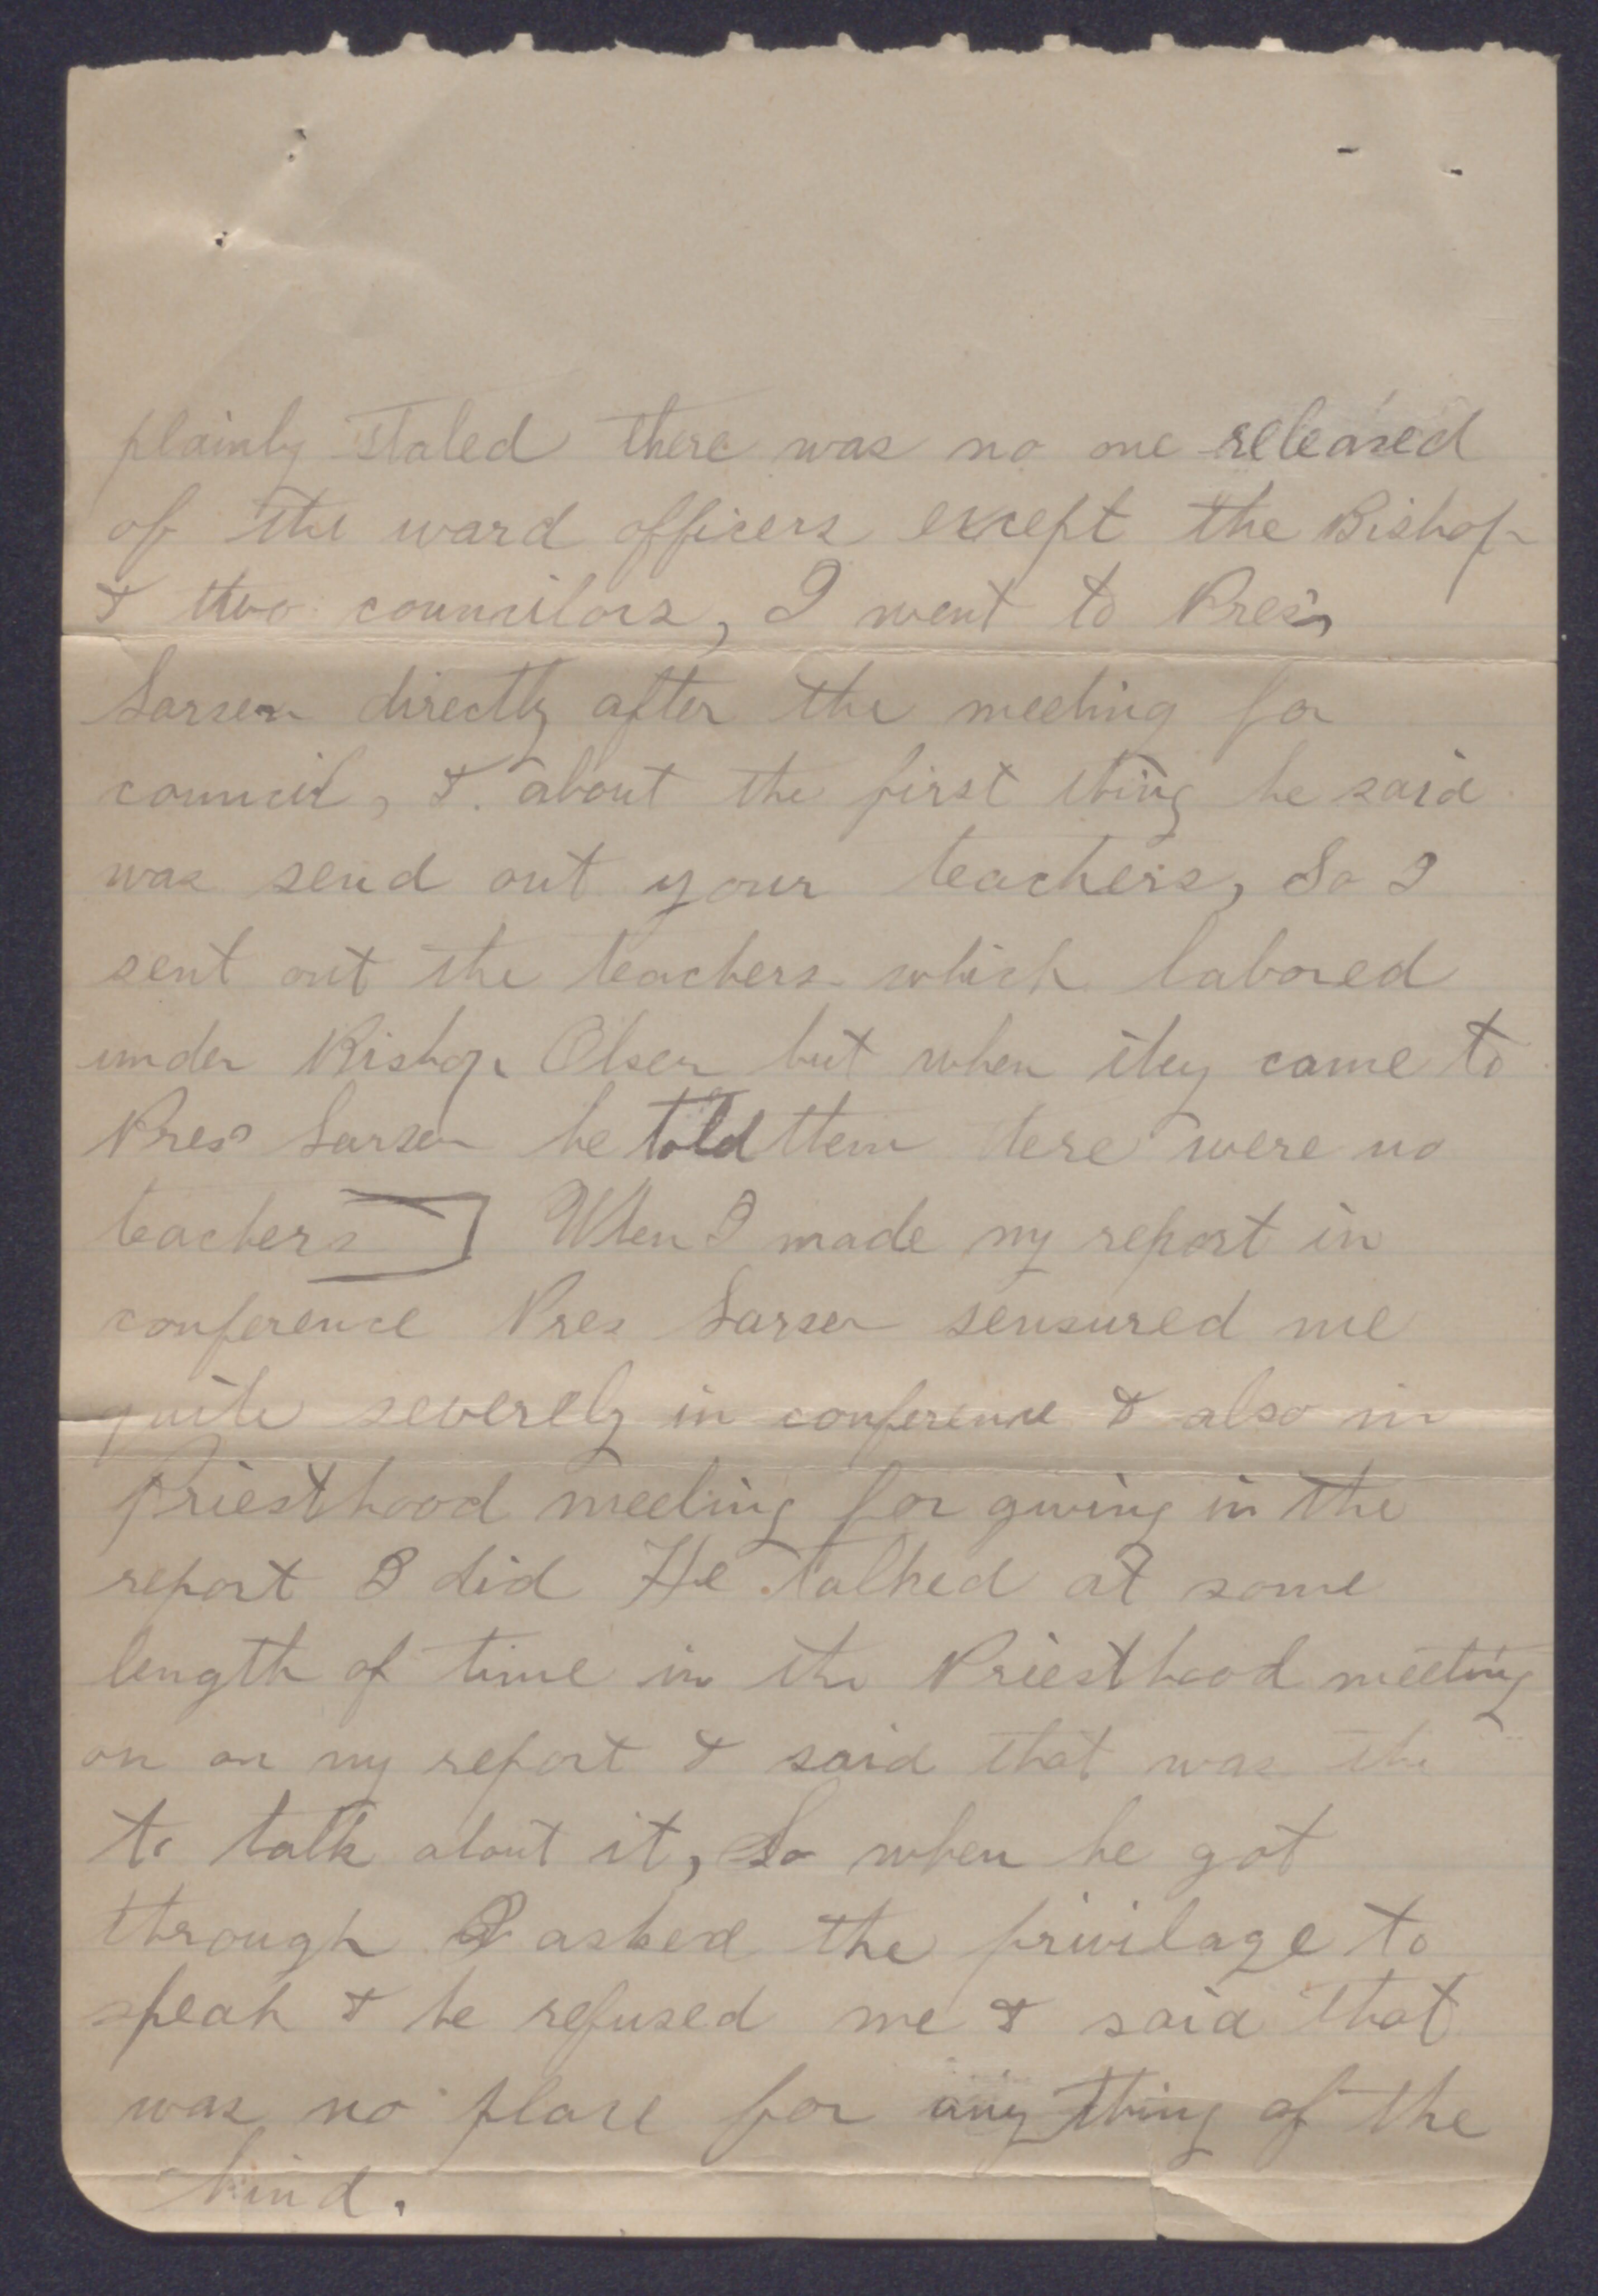 plainly stated there was no one released
of the ward officers except the Bishop
& two councilors, I went to Pres,
Larsen directly after the meeting for
council, & about the first thing he said
was send out your teachers, So I
sent out the teachers which labored
under Bishop Olsen but when they came to
Pres Larsen he told them there were no
teachers] When I made my report in
conference Pres Larsen sensured me
quite severely in conference & also in
Priesthood meeting for giving in the
report I did He talked at some
length of time in the Priesthood meeting
on on my report & said that was the
to talk about it, So when he got
through I asked the privilage to
speak & he refused me & said that
was no place for any thing of the
kind.